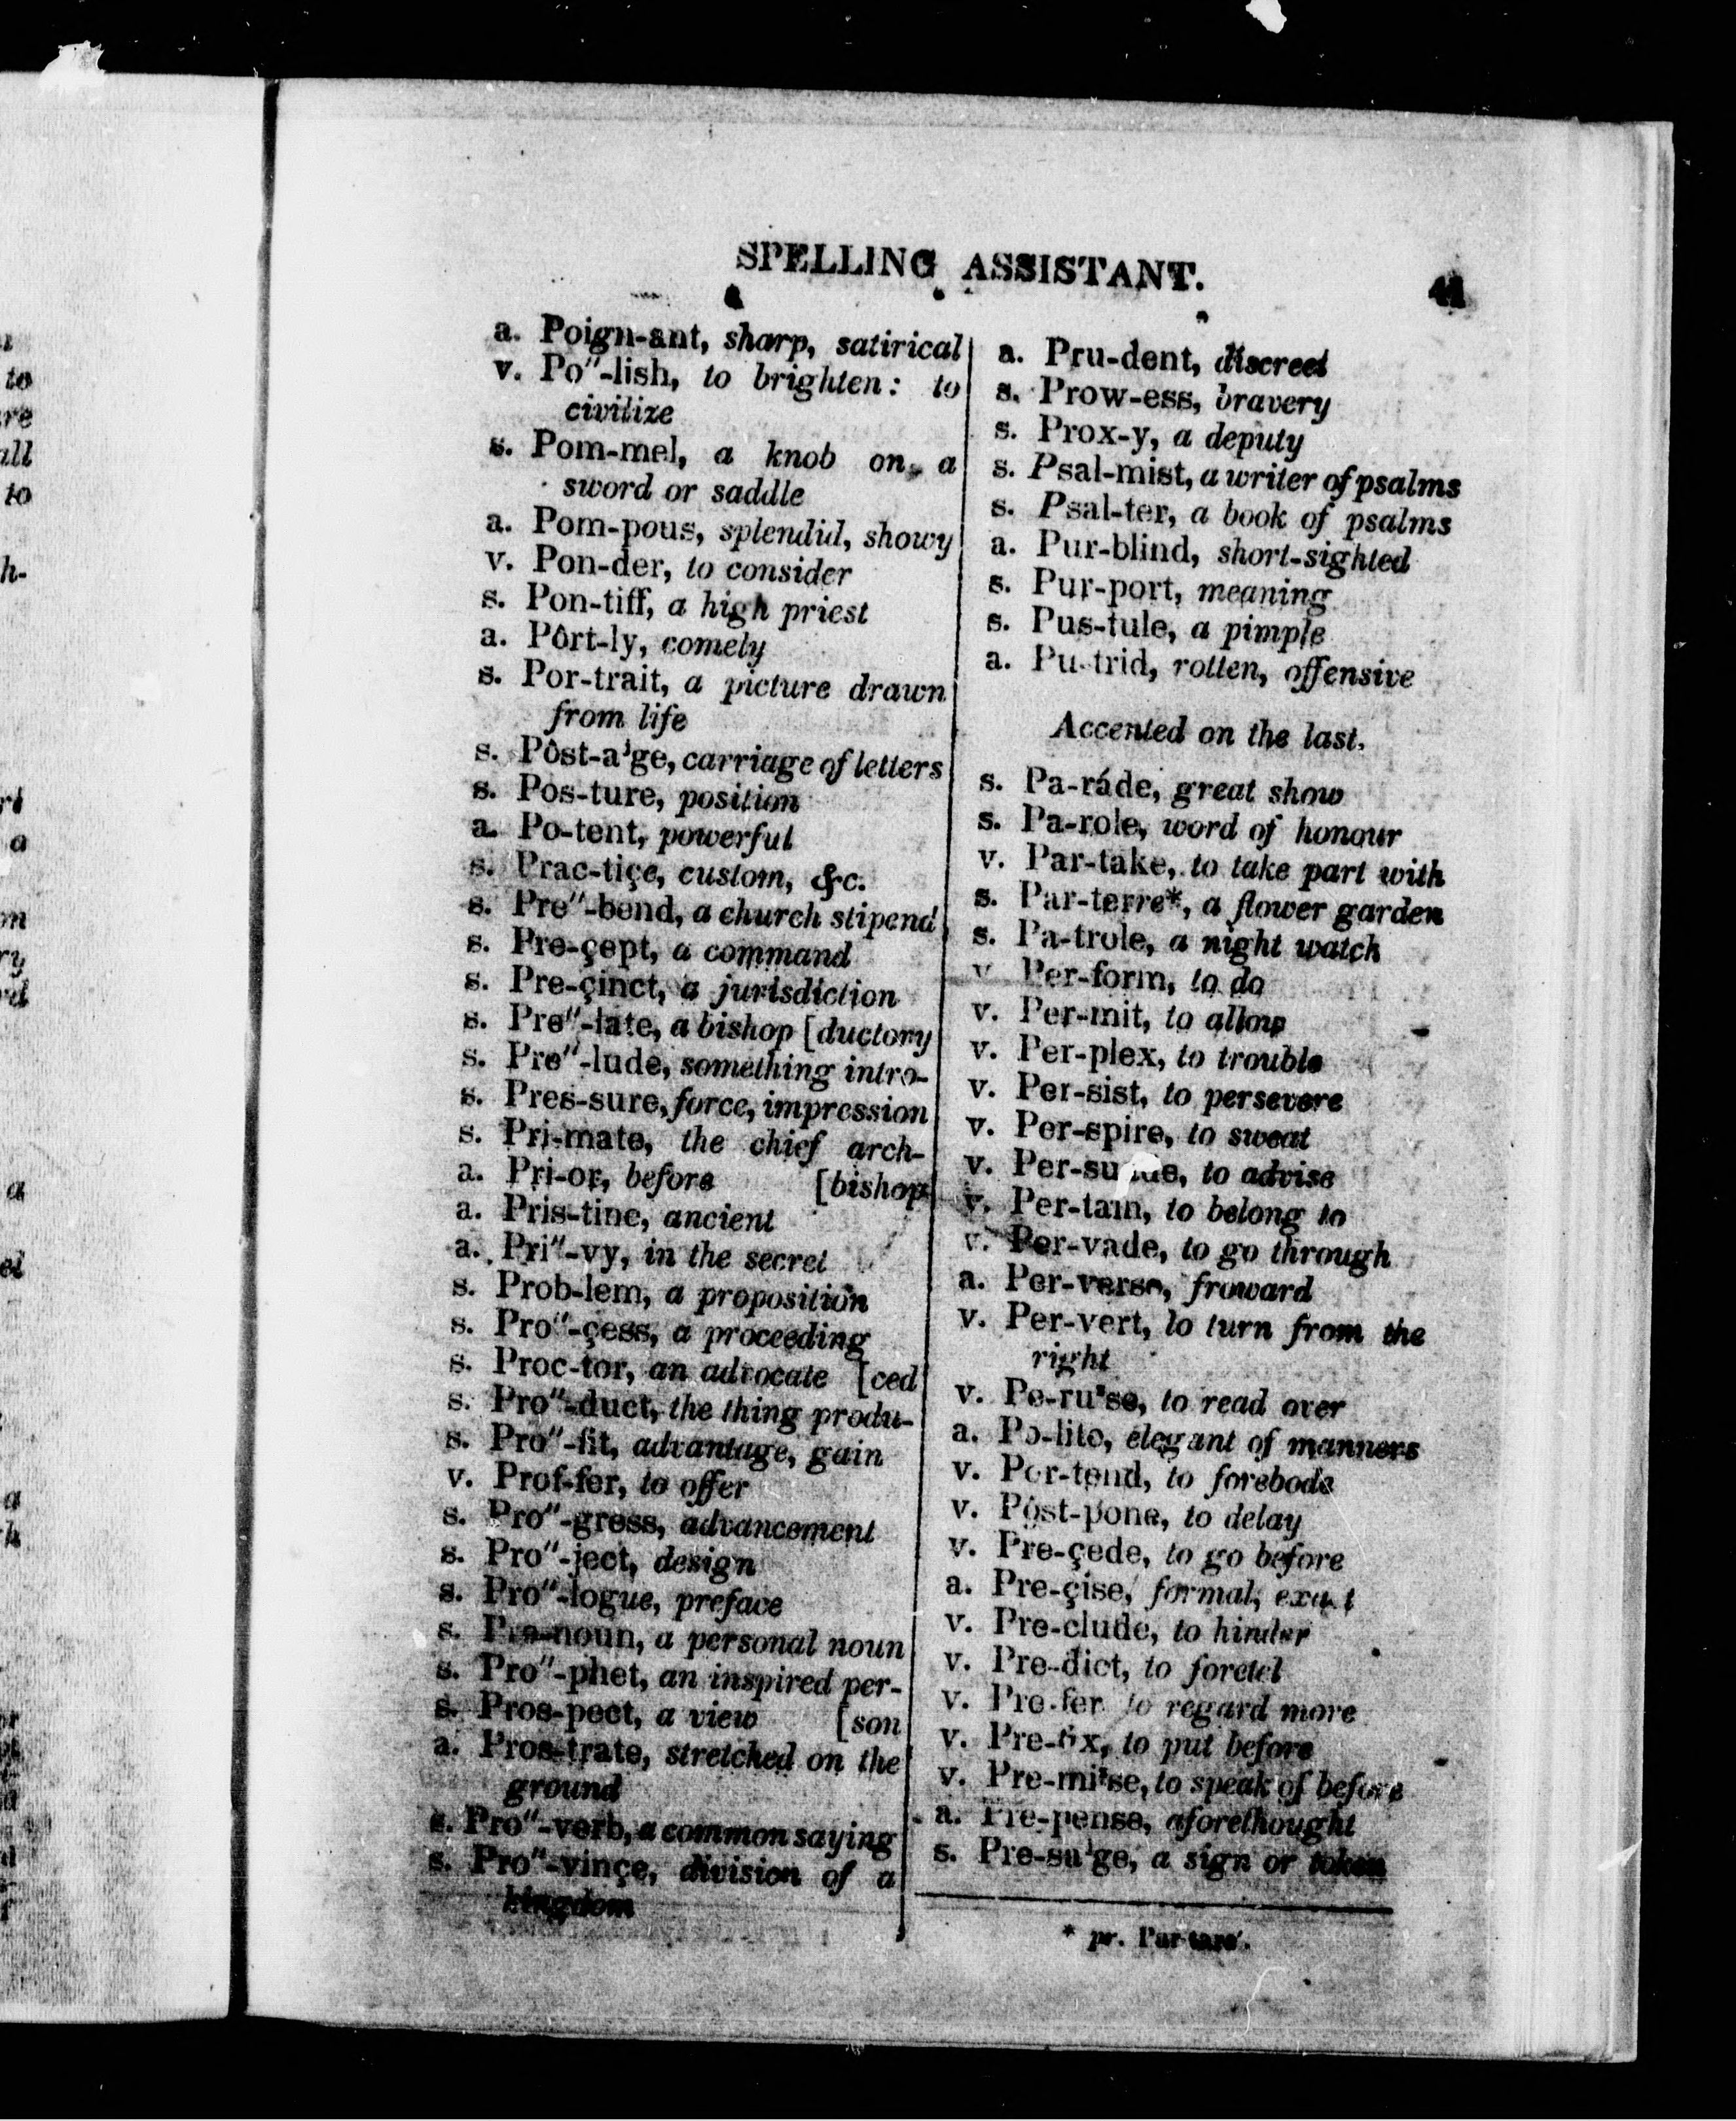 SPELLING ASSISTANT.
41
a. Poign-ant, sharp, satirical
v. Po"-lish, to brighten: to
civilize
s. Pom-mel, a knob on a
sword or saddle
a. Pom-pous, splendid, showy
v. Pon-der, to consider
s. Pon-tiff, a high priest
a. Pôrt-ly, comely
s. Por-trait, a picture drawn
from life
s. Pôst-a'ge, carriage of letters
s. Pos-ture, position
a. Po-tent, powerful
s. Prac-tiçe, custom, &c.
s. Pre"-bend, a church stipend
s. Pre-çept, a command
s. Pre-çinct, a jurisdiction
s. Pre"-late, a bishop [ductory
s. Pre"-lude, something intro-
s. Pres-sure, force, impression
s. Pri-mate, the chief arch-
a. Pri-or, before [bishop
a. Pris-tine, ancient
a. Pri"-vy, in the secret
s. Prob-lem, a proposition
s. Pro"-çess, a proceeding
s. Proc-tor, an advocate [ced
s. Pro"-duct, the thing produ-
s. Pro"-fit, advantage, gain
v. Prof-fer, to offer
s. Pro"-gress, advancement
s. Pro"-ject, design
s. Pro"-logue, preface
s. Pro-noun, a personal noun
s. Pro"-phet, an inspired per-
s. Pros-pect, a view [son
a. Pros-trate, stretched on the
ground
s. Pro"-verb, a common saying
s. Pro"-vinçe, division of a
kingdom
a. Pru-dent, discreet
s. Prow-ess, bravery
s. Prox-y, a deputy
s. Psal-mist, a writer of psalms
s. Psal-ter, a book of psalms
a. Pur-blind, short-sighted
s. Pur-port, meaning
s. Pus-tule, a pimple
a. Pu-trid, rotten, offensive
Accented on the last.
s. Pa-ráde, great show
s. Pa-role, word of honour
v. Par-take, to take part with
s. Par-terre*, a flower garden
s. Pa-trole, a night watch
v. Per-form, to do
v. Per-mit, to allow
v. Per-plex, to trouble
v. Per-sist, to persevere
v. Per-spire, to sweat
v. Per-suade, to advise
v. Per-tain, to belong to
v. Per-vade, to go through
a. Per-verse, froward
v. Per-vert, to turn from the
right
v. Pe-ru*se, to read over
a. Po-lite, elegant of manners
v. Por-tend, to forebode
v. Pôst-pone, to delay
v. Pre-çede, to go before
a. Pre-çise, formal, exact
v. Pre-clude, to hinder
v. Pre-dict, to foretel
v. Pre-fer, to regard more
v. Pre-fix, to put before
v. Pre-mi*se, to speak of before
a. Pre-pense, aforethought
s. Pre-sa'ge, a sign or token
* pr. Par-tare'.